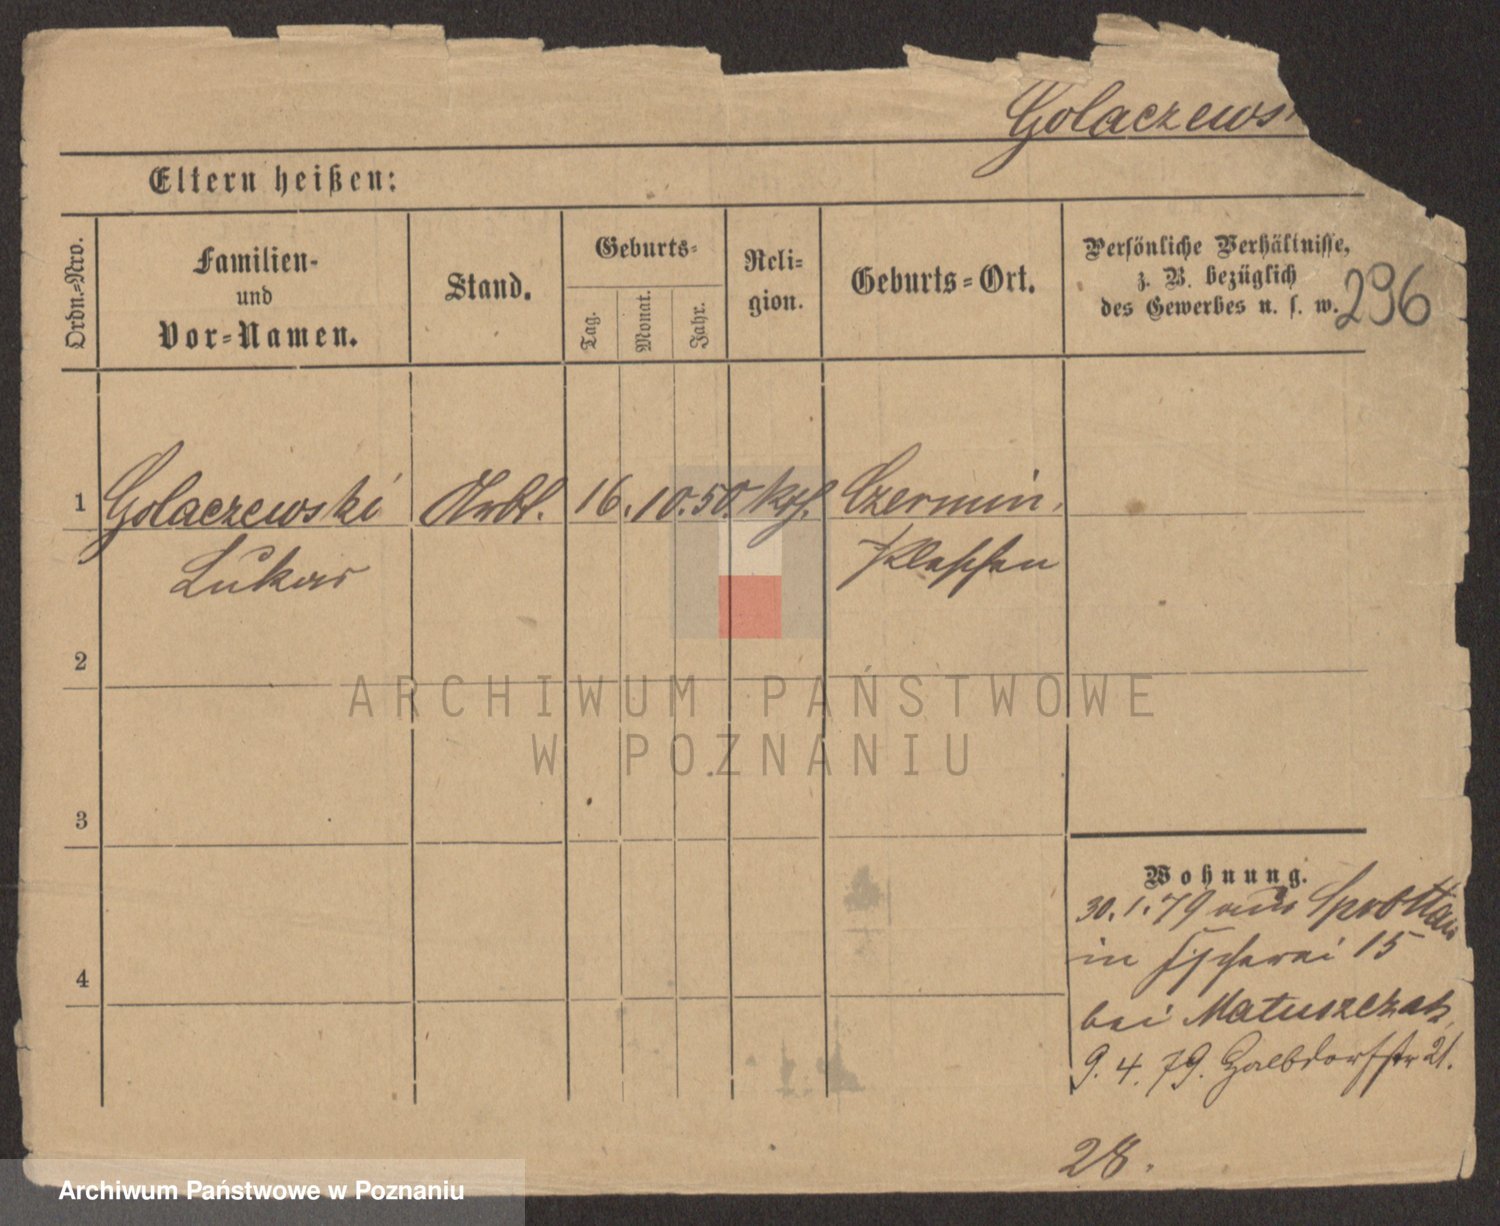 Golaczews
Eltern heißen:
Ordn.-Nro.
Familien-
und
Vor-Namen.
Stand.
Geburts-
Tag.
Monat.
Jahr.
Reli-
gion.
Geburts-Ort.
Persönliche Verhältnisse,
z. B. bezüglich
des Gewerbes u. s. w.
296
1 Golaczewski Arbt. 16. 10. 50. kth. Czermin.
Lukas Pleschen
2
3
4
Wohnung.
30. 1. 79 aus Sprottau
in Fischerei 15
bei Matuszczak
9. 4. 79. Halbdorfstr 21.
28.
ARCHIWUM PAŃSTWOWE
W POZNANIU
Archiwum Państwowe w Poznaniu